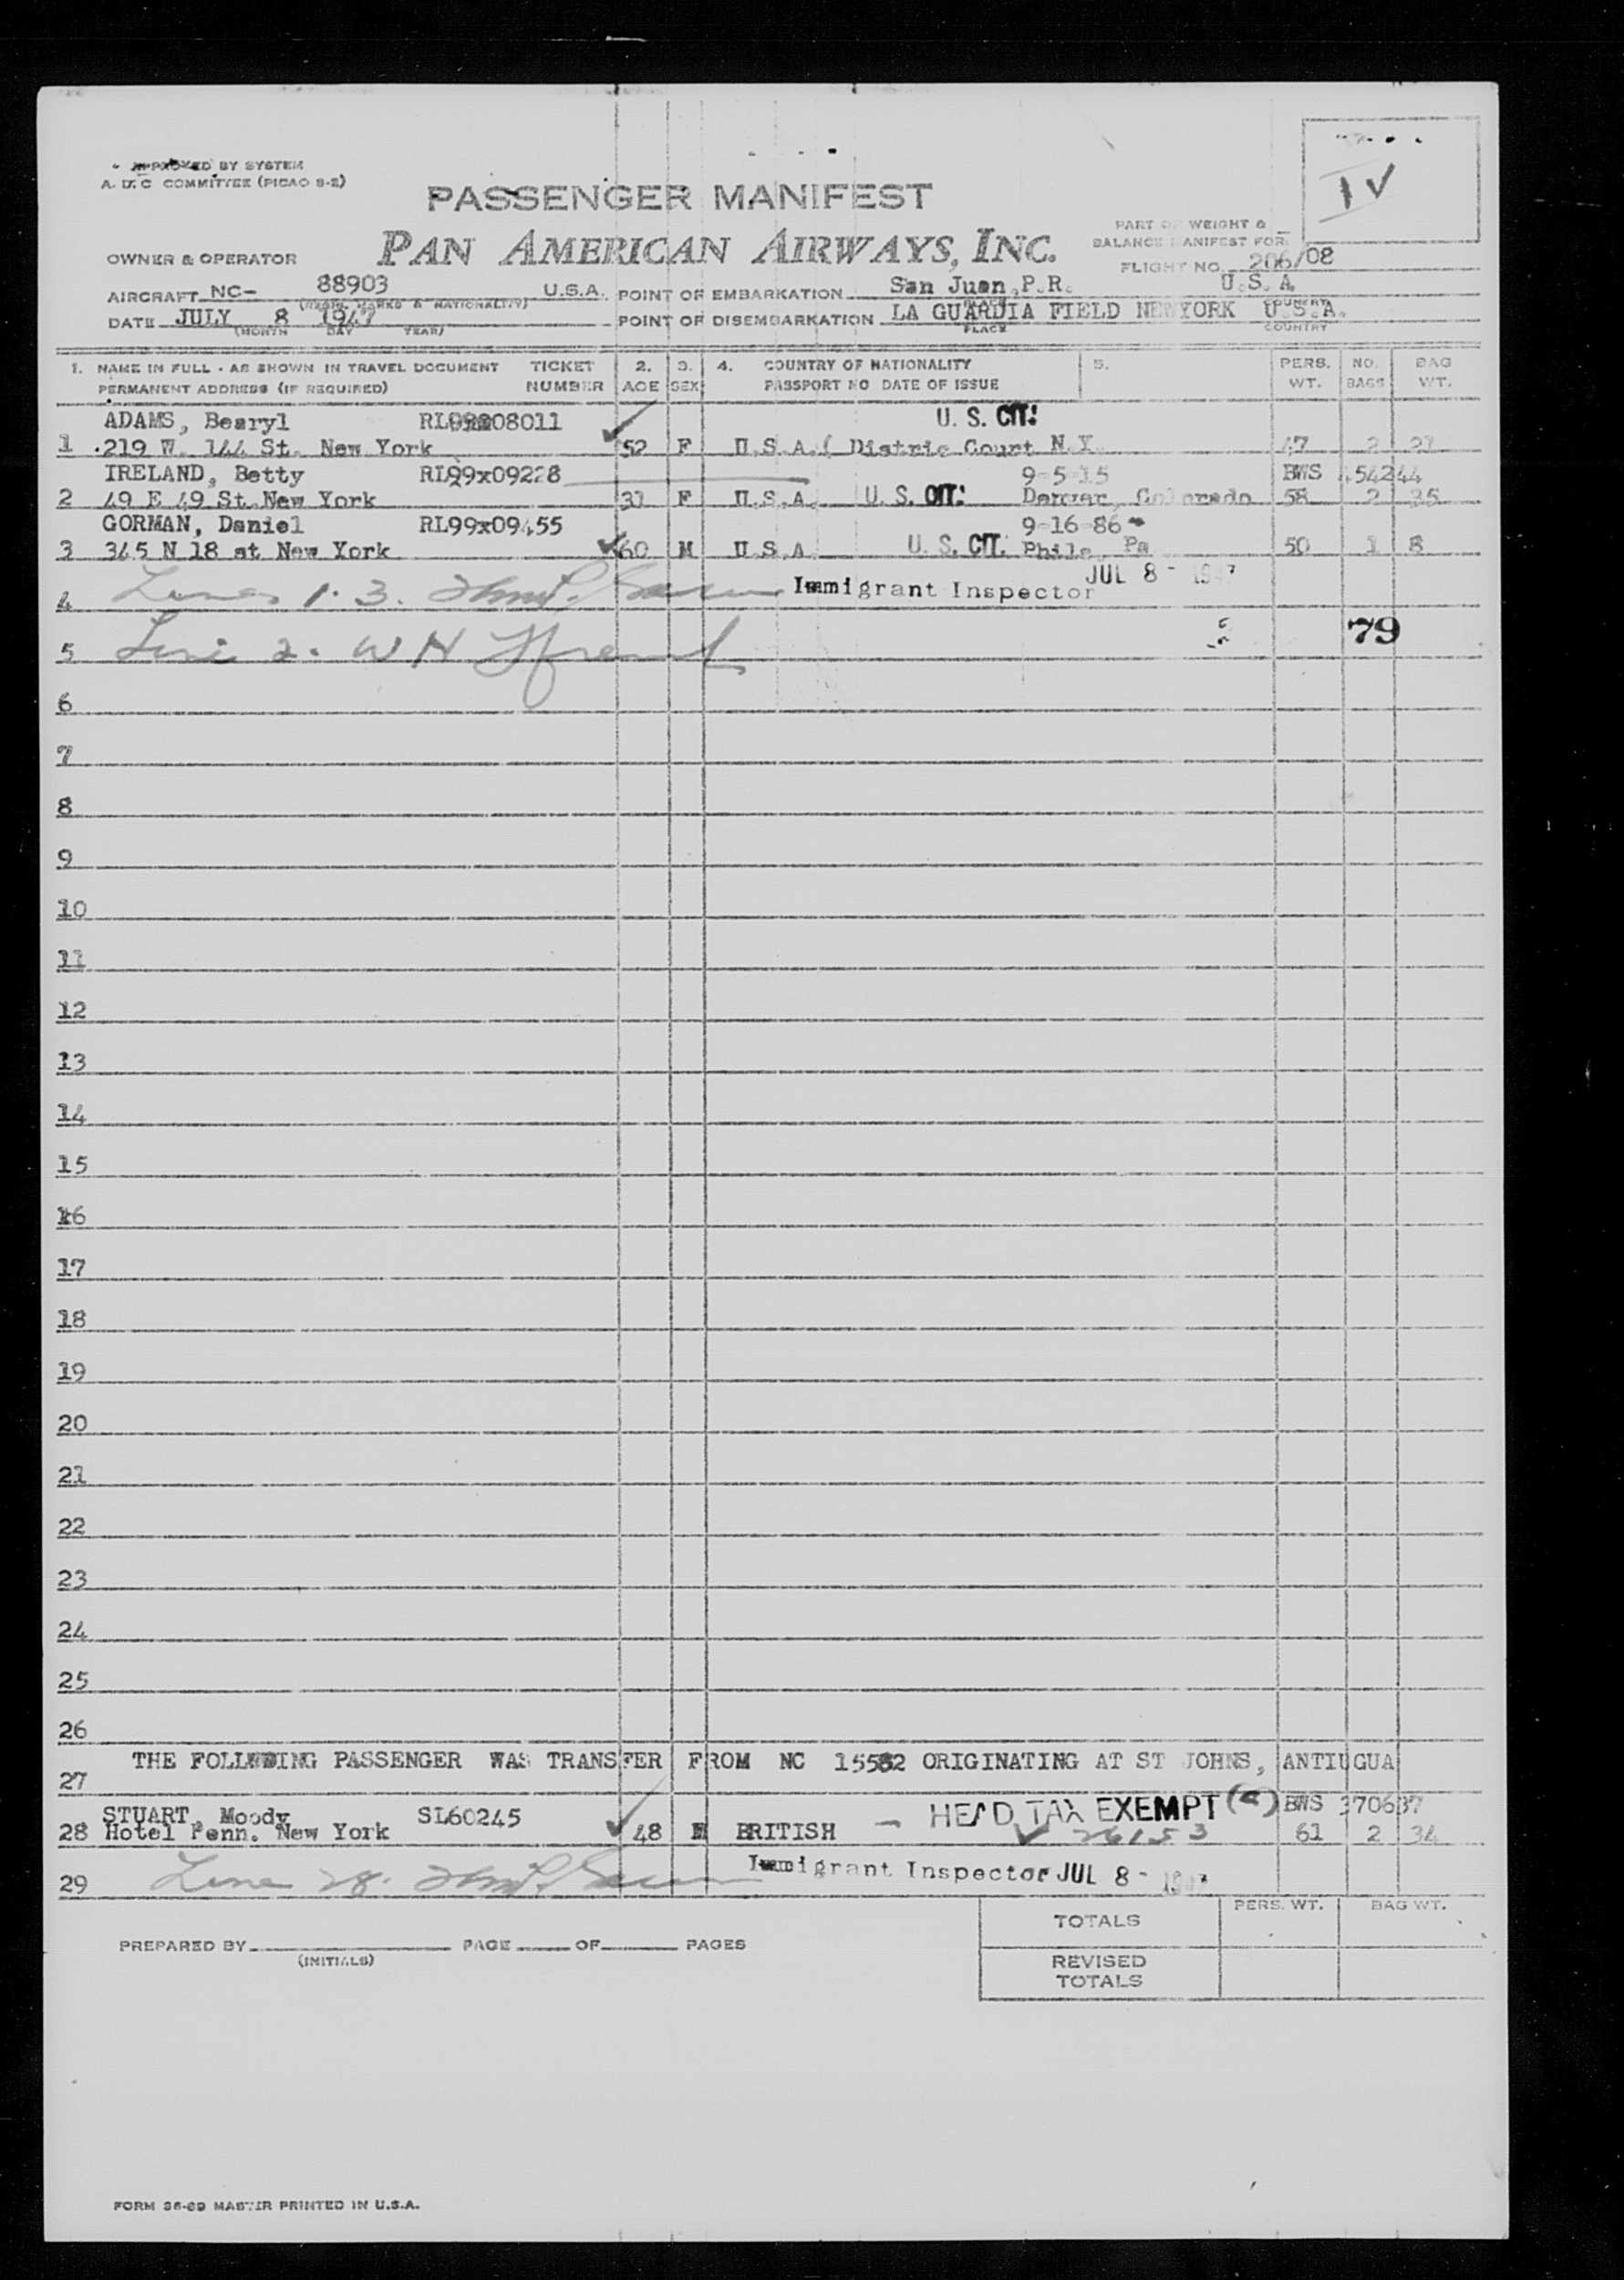 APPROVED BY SYSTEM
A. D. C COMMITTEE (PICAO S-2)
PASSENGER MANIFEST
PAN AMERICAN AIRWAYS, INC.
1 ✓
PART OF WEIGHT &
BALANCE MANIFEST FOR
FLIGHT NO. 206/08
OWNER & OPERATOR
AIRCRAFT NC- 88903 U.S.A. POINT OF EMBARKATION San Juan, P.R. U.S.A.
(REGIS. MARKS & NATIONALITY) PLACE COUNTRY
DATE JULY 8 1947 POINT OF DISEMBARKATION LA GUARDIA FIELD NEW YORK U.S.A.
(MONTH DAY YEAR) PLACE COUNTRY
1. NAME IN FULL - AS SHOWN IN TRAVEL DOCUMENT TICKET 2. 3. 4. COUNTRY OF NATIONALITY 5. PERS. NO. BAG
PERMANENT ADDRESS (IF REQUIRED) NUMBER AGE SEX PASSPORT NO DATE OF ISSUE WT. BAGS WT.
ADAMS, Bearyl U. S. CIT.
1 219 W. 144 St. New York 52 F U.S.A. ( Distric Court N.Y. 47 2
IRELAND, Betty RL99x09228 9-5-15 BWS 454244
2 49 E 49 St. New York 31 F U.S.A. U. S. CIT. Denver, Colorado 58 2 35
GORMAN, Daniel RL99x09455 9-16-86
3 345 N 18 st New York 60 M U.S.A. U. S. CIT. Phila. Pa 50 1 8
4 Lines 1. 3. Immigrant Inspector JUL 8 - 1947
5 Line 2. W H 79
6
7
8
9
10
11
12
13
14
15
16
17
18
19
20
21
22
23
24
25
26
THE FOLLOWING PASSENGER WAS TRANSFER FROM NC 15582 ORIGINATING AT ST JOHNS, ANTIUGUA
27
STUART, Moody SL60245 — HEAD TAX EXEMPT BWS 370637
28 Hotel Penn. New York 48 M BRITISH 26153 61 2 34
29 Line 28. Immigrant Inspector JUL 8 - 1947
PERS. WT. BAG WT.
TOTALS
PREPARED BY PAGE OF PAGES
(INITIALS)
REVISED
TOTALS
FORM 36-69 MASTER PRINTED IN U.S.A.